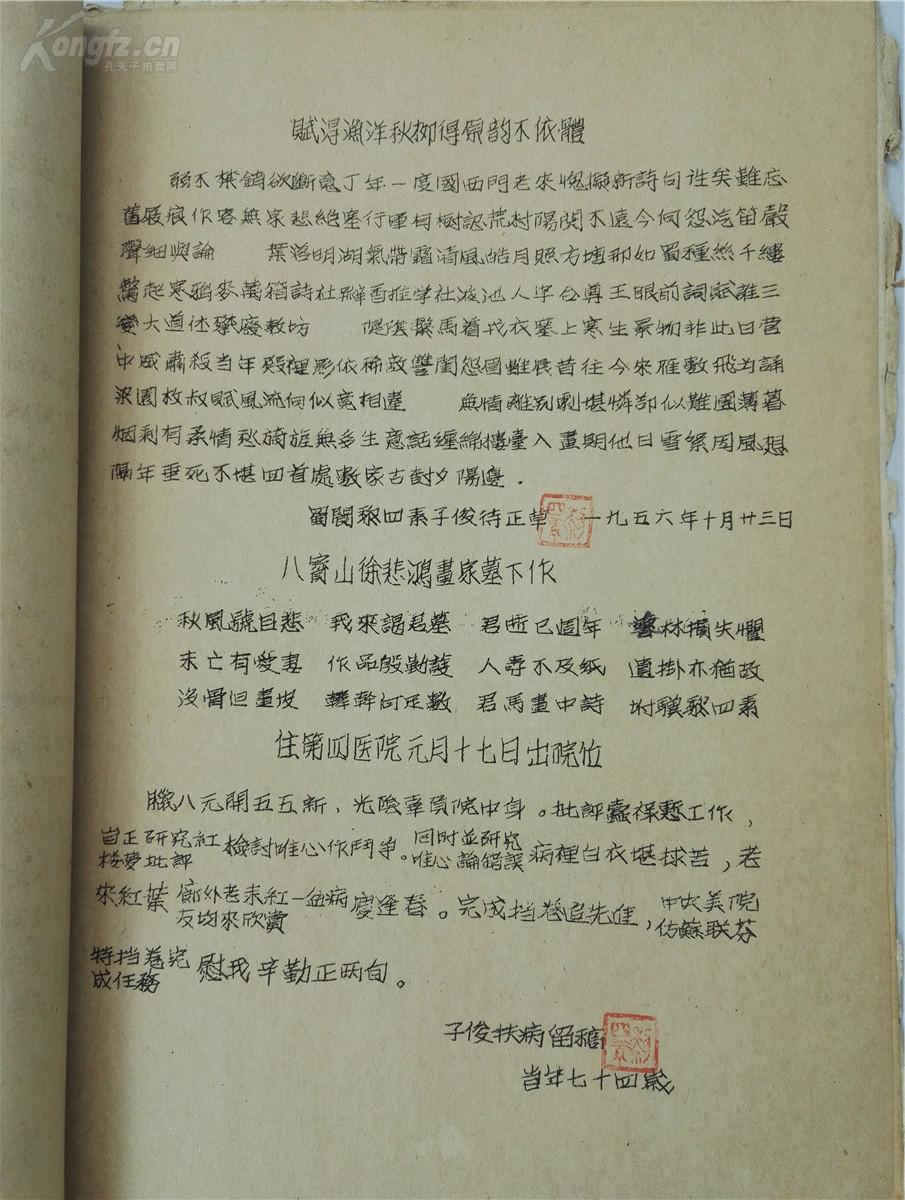 Kongfz.cn
孔夫子拍卖网
賦得漁洋秋柳得原韵不依體
弱不禁銷欲斷魂丁年一度國西門老來愧擬新詩句性矣難忘
舊屐痕作客無家悲絕塞行車有樹認荒村陽関不遠今何怨汽笛聲
聲細與論 葉落明湖氣帶霜清風皓月照方塘那如蜀種絲千縷
驚起寒鴉麥萬箱詩社辦香推学社液池人字台尊王眼前詞賦誰三
變大道休藥廢教坊 隄陰繫馬着戎衣墓上寒生景物非此日营
中威肅殺当年殿裡影依稀敌讐閨怨圖雖展昔往今來雁數飛为誦
梁園枚叔賦風流何似竟相違 無情離別劇堪憐却似難團薄暮
烟剩有柔情愁旖旎無多生意話纏綿樓臺入畫期他日雪絮因風想
隔年垂死不堪回首處數家古對夕陽邊.
蜀閬黎四素子俊待正草 一九五六年十月廿三日
八寳山徐悲鴻畫家墓下作
秋風號自悲 我來謁君墓 君逝已週年 林損失懼
未亡有愛妻 作品般勤護 人壽不及紙 遺掛亦猶故
沒骨但畫皮 韓幹何足數 君馬畫中詩 附驥黎四素
住第四医院元月十七日出院作
臘八元開五五新、光陰辜負院中身。批評蠹祿慙工作，
自正研究紅
楼夢批評 檢討唯心作鬥争。 同时並研究
唯心論錯誤 病裡白衣堪捄苦，老
來紅葉 廊外老來紅一盆病
友均來欣賞 慶逢春。完成挡卷追先進， 中央美院
仿蘇联芬
特挡卷完
成任務 慰我辛勤正两旬。
子俊扶病留稿
当年七十四歲